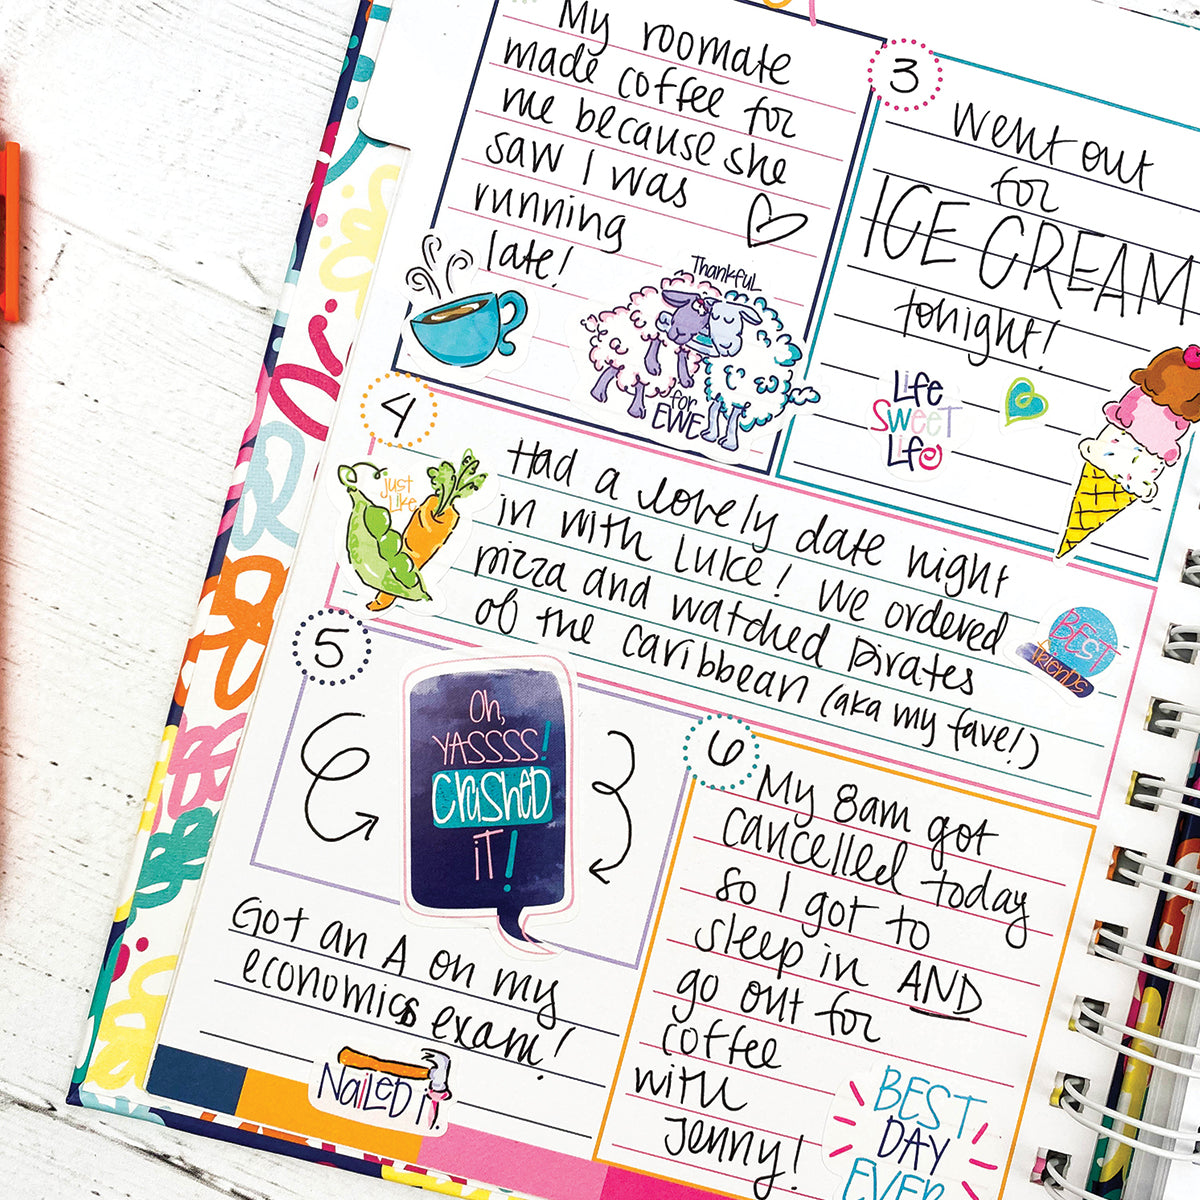 My roomate
made coffee for
me because she
saw I was
running
late!
Thankful
for
EWE
3
Went out
for
ICE CREAM
tonight!
Life
SWEET
Life
4
just
Like
Had a lovely date night
in with Luke! We ordered
pizza and watched Pirates
of the Caribbean (aka my fave!)
BEST
friends
5
Oh,
YASSSS!
CRUSHED
iT!
Got an A on my
economics exam!
NaiLED iT.
6
My 8am got
cancelled today
so I got to
sleep in AND
go out for
coffee
with
Jenny!
BEST
DAY
EVER